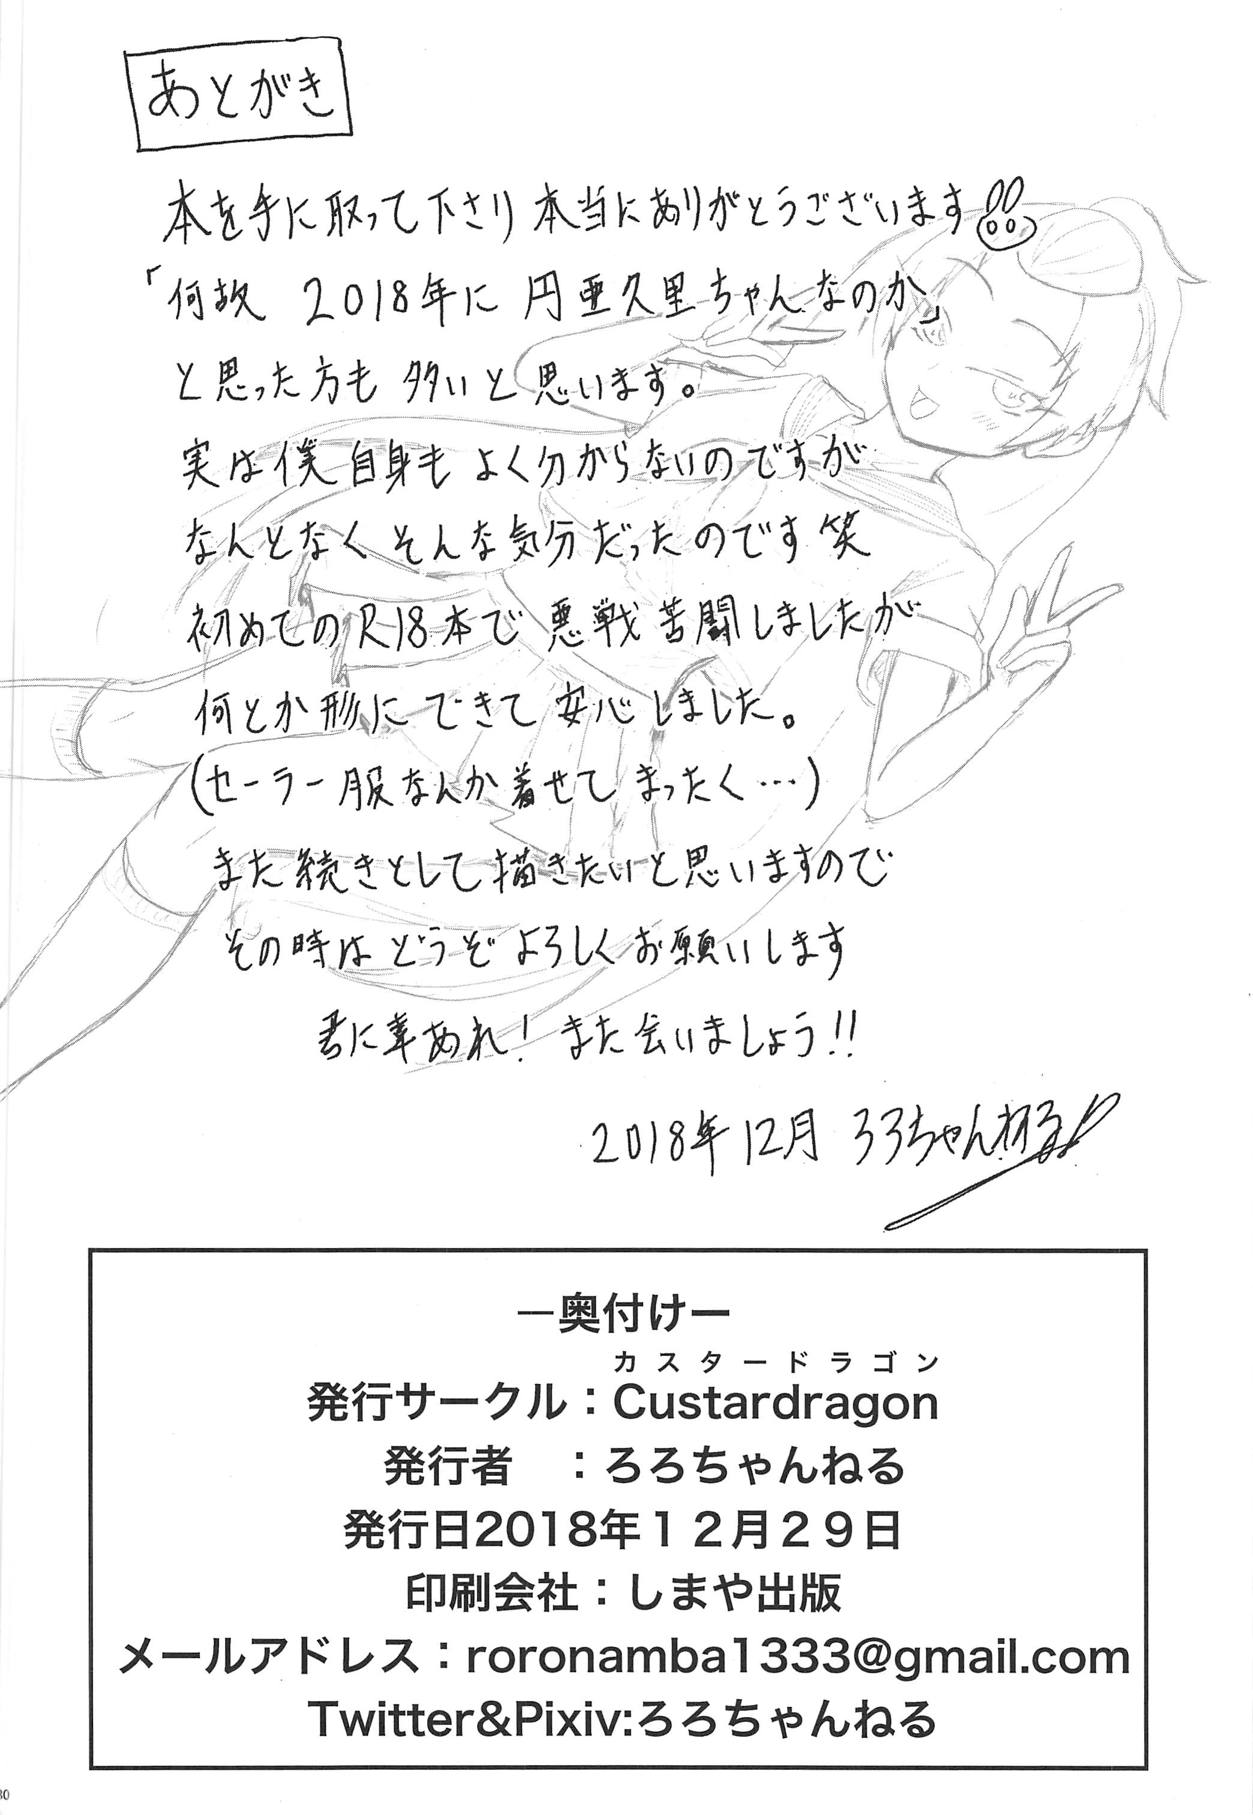 あとがき
本を手に取って下さり本当にありがとうございます!!
「何故 2018年に 円亜久里ちゃんなのか」
と思った方も多いと思います。
実は僕自身もよく分からないのですが
なんとなくそんな気分だったのです笑
初めてのR18本で悪戦苦闘しましたが
何とか形にできて安心しました。
(セーラー服なんか着せてまったく…)
また続きとして描きたいと思いますので
その時はどうぞよろしくお願いします
君に幸あれ! また会いましょう!!
2018年12月 ろろちゃんねる
―奥付けー
カスタードラゴン
発行サークル：Custardragon
発行者　：ろろちゃんねる
発行日2018年１２月２９日
印刷会社：しまや出版
メールアドレス：roronamba1333@gmail.com
Twitter&Pixiv:ろろちゃんねる